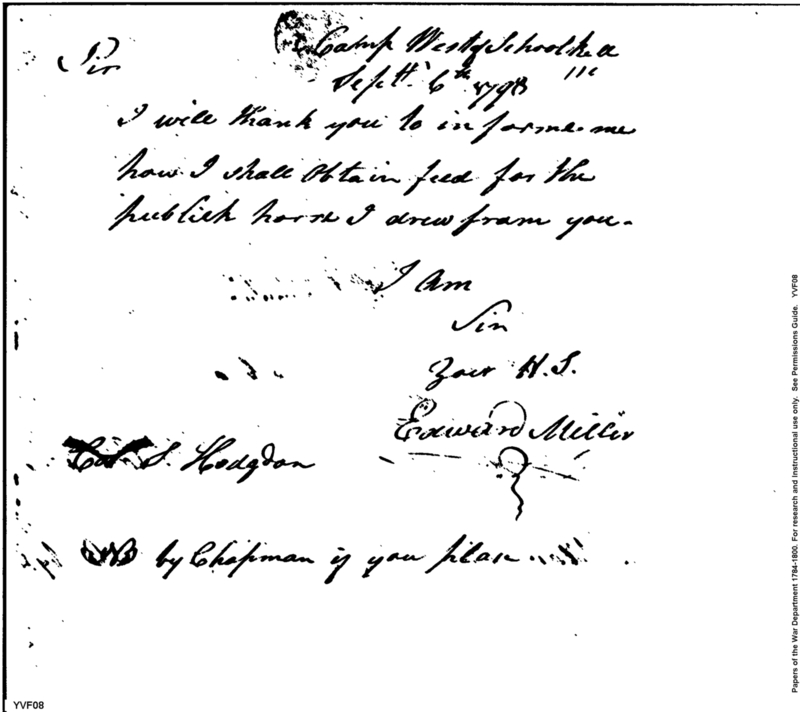 Camp West of Schoolkil
Sir
Sept. 6th 1798
I will thank you to informe me
how I shall obtain feed for the
publick horse I drew from you.
I am
Sir
Your H.S.
Edward Miller
Col. S. Hodgdon
NB by Chapman if you plase
Papers of the War Department 1784-1800. For research and Instructional use only. See Permissions Guide. YVF08
YVF08